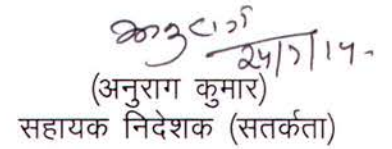 24/7/14
(अनुराग कुमार)
सहायक निदेशक (सतर्कता)